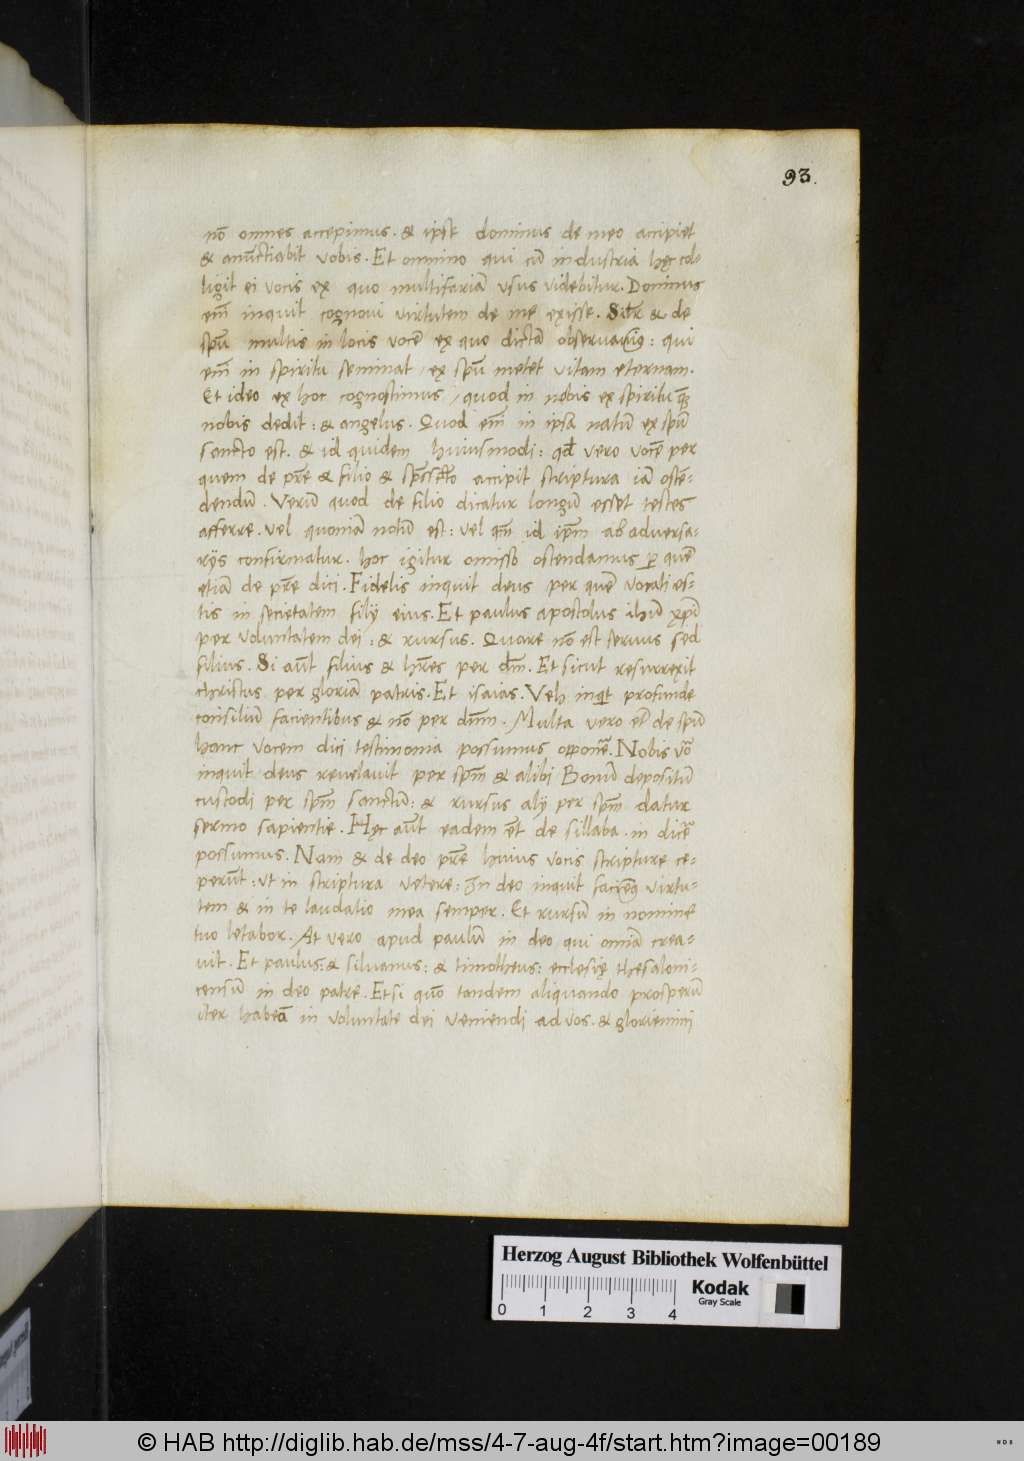 93.
nō omnes accepimus. & ipse dominus de meo accipiet
& anūctiabit vobis. Et omnino qui cū industria hęc col-
ligit ei vocis ex quo multifariā usus videbitur. Dominus
em̄ inquit cognovi virtutem de me exisse. & de
spū multis in locis vocē ex quo dictā : qui
em̄ in spiritu seminat, ex spū metet vitam eternam.
Et ideo ex hoc cognoscimus, quod in nobis ex spiritu
nobis dedit: & angelus. Quod em̄ in ipsa natū ex spū
sancto est. & id quidem huiusmodi: qd vero vocē per
quem de pr̄e & filio & accipit scriptura iā ostē-
dendū. Verū quod de filio dicatur longū esset testes
afferre. vel quoniā notū est: vel qm̄ id ip̄m ab adversa-
rijs confirmatur. hoc igitur omisso ostendamus quē
etiā de pr̄e dici. Fidelis inquit deus per quē vocati es-
tis in societatem filij eius. Et paulus apostolus ihū xpi
per voluntatem dei: & rursus. Quare nō est servus sed
filius. Si aūt filius & hr̄es per dm̄. Et sicut resurrexit
christus per gloriā patris. Et isaias. Veh inqt profunde
consiliū facientibus & nō per dnm̄. Multa vero de spū
hanc vocem dici testimonia possumus opponē. Nobis vō
inquit deus revelavit per spm̄ & alibi Bonū depositū
custodi per spm̄ sanctū: & rursus alij per spm̄ datur
sermo sapientie. Hęc aūt eadem de sillaba. in dicē
possumus. Nam & de deo pr̄e huius vocis scripture ce-
perūt: ut in scriptura vetere: In deo inquit virtu-
tem & in te laudatio mea semper. Et rursū in nomine
tuo letabor. At vero apud paulū in deo qui omīa crea-
vit. Et paulus: & silvanus: & timotheus: ecclesię thesaloni-
censiū in deo patre. Et si quō tandem aliquando prosperū
iter habeā in voluntate dei veniendi ad vos. & gloriemini
Herzog August Bibliothek Wolfenbüttel
0 1 2 3 4
Kodak
Gray Scale
© HAB http://diglib.hab.de/mss/4-7-aug-4f/start.htm?image=00189